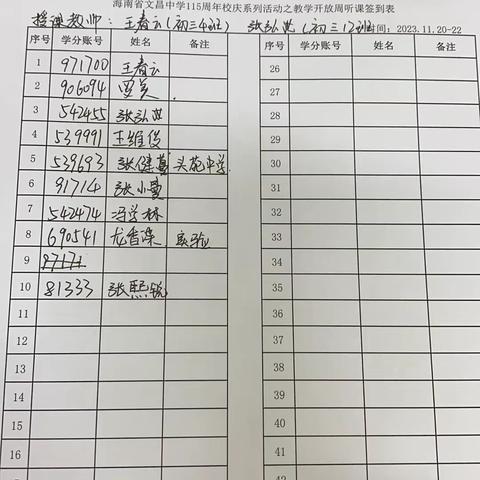 海南省文昌中学115周年校庆系列活动之教学开放周听课签到表
授课教师：王春云(初三4班) 张弘 (初三12班) 时间：2023.11.20-22
序号 学分账号 姓名 备注 序号 学分账号 姓名 备注
1 971700 王春云 26
2 906094 27
3 542455 张弘 28
4 539991 王维俊 29
5 539693 张健 头苑中学. 30
6 91714 张小 31
7 542474 冯学林 32
8 690541 龙香 实验 33
9 87171 34
10 81333 张熙锐 35
11 36
12 37
13 38
14 39
15 40
16 41
42